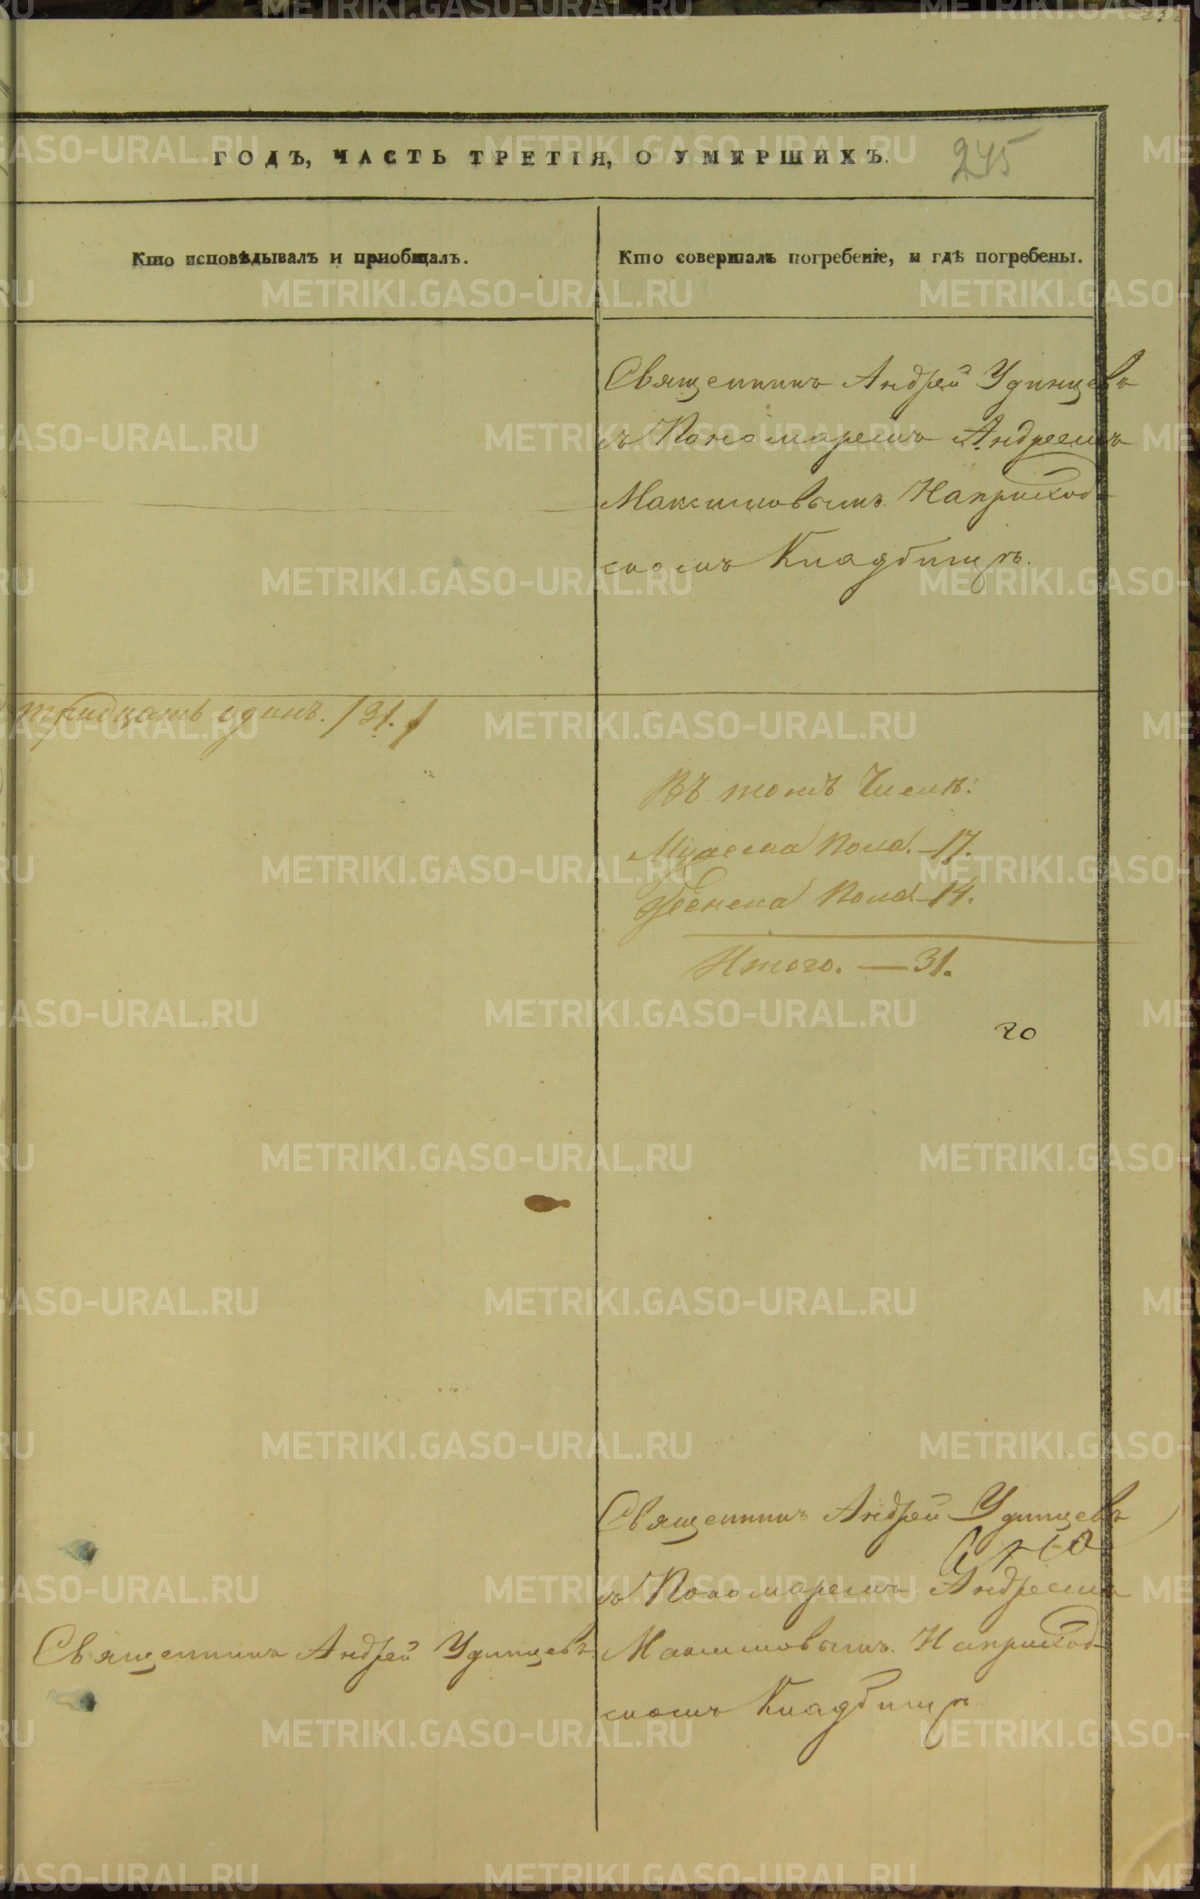 ГОДЪ, ЧАСТЬ ТРЕТІЯ, О УМЕРШИХЪ.
245
Кто исповѣдывалъ и приобщалъ.
Кто совершалъ погребеніе, и гдѣ погребены.
Священникъ Андрей Удинцевъ
съ Пономаремъ Андреемъ
Максимовымъ. На приход-
скомъ Кладбищѣ.
тридцать одинъ. /31./
Въ томъ Числѣ:
Мужеска Пола.-17.
Женска Пола-14.
Итого. — 31.
20
Священникъ Андрей Удинцевъ
съ Пономаремъ Андреемъ
Священникъ Андрей Удинцевъ.
Максимовымъ. На приход-
скомъ Кладбищѣ
METRIKI.GASO-URAL.RU